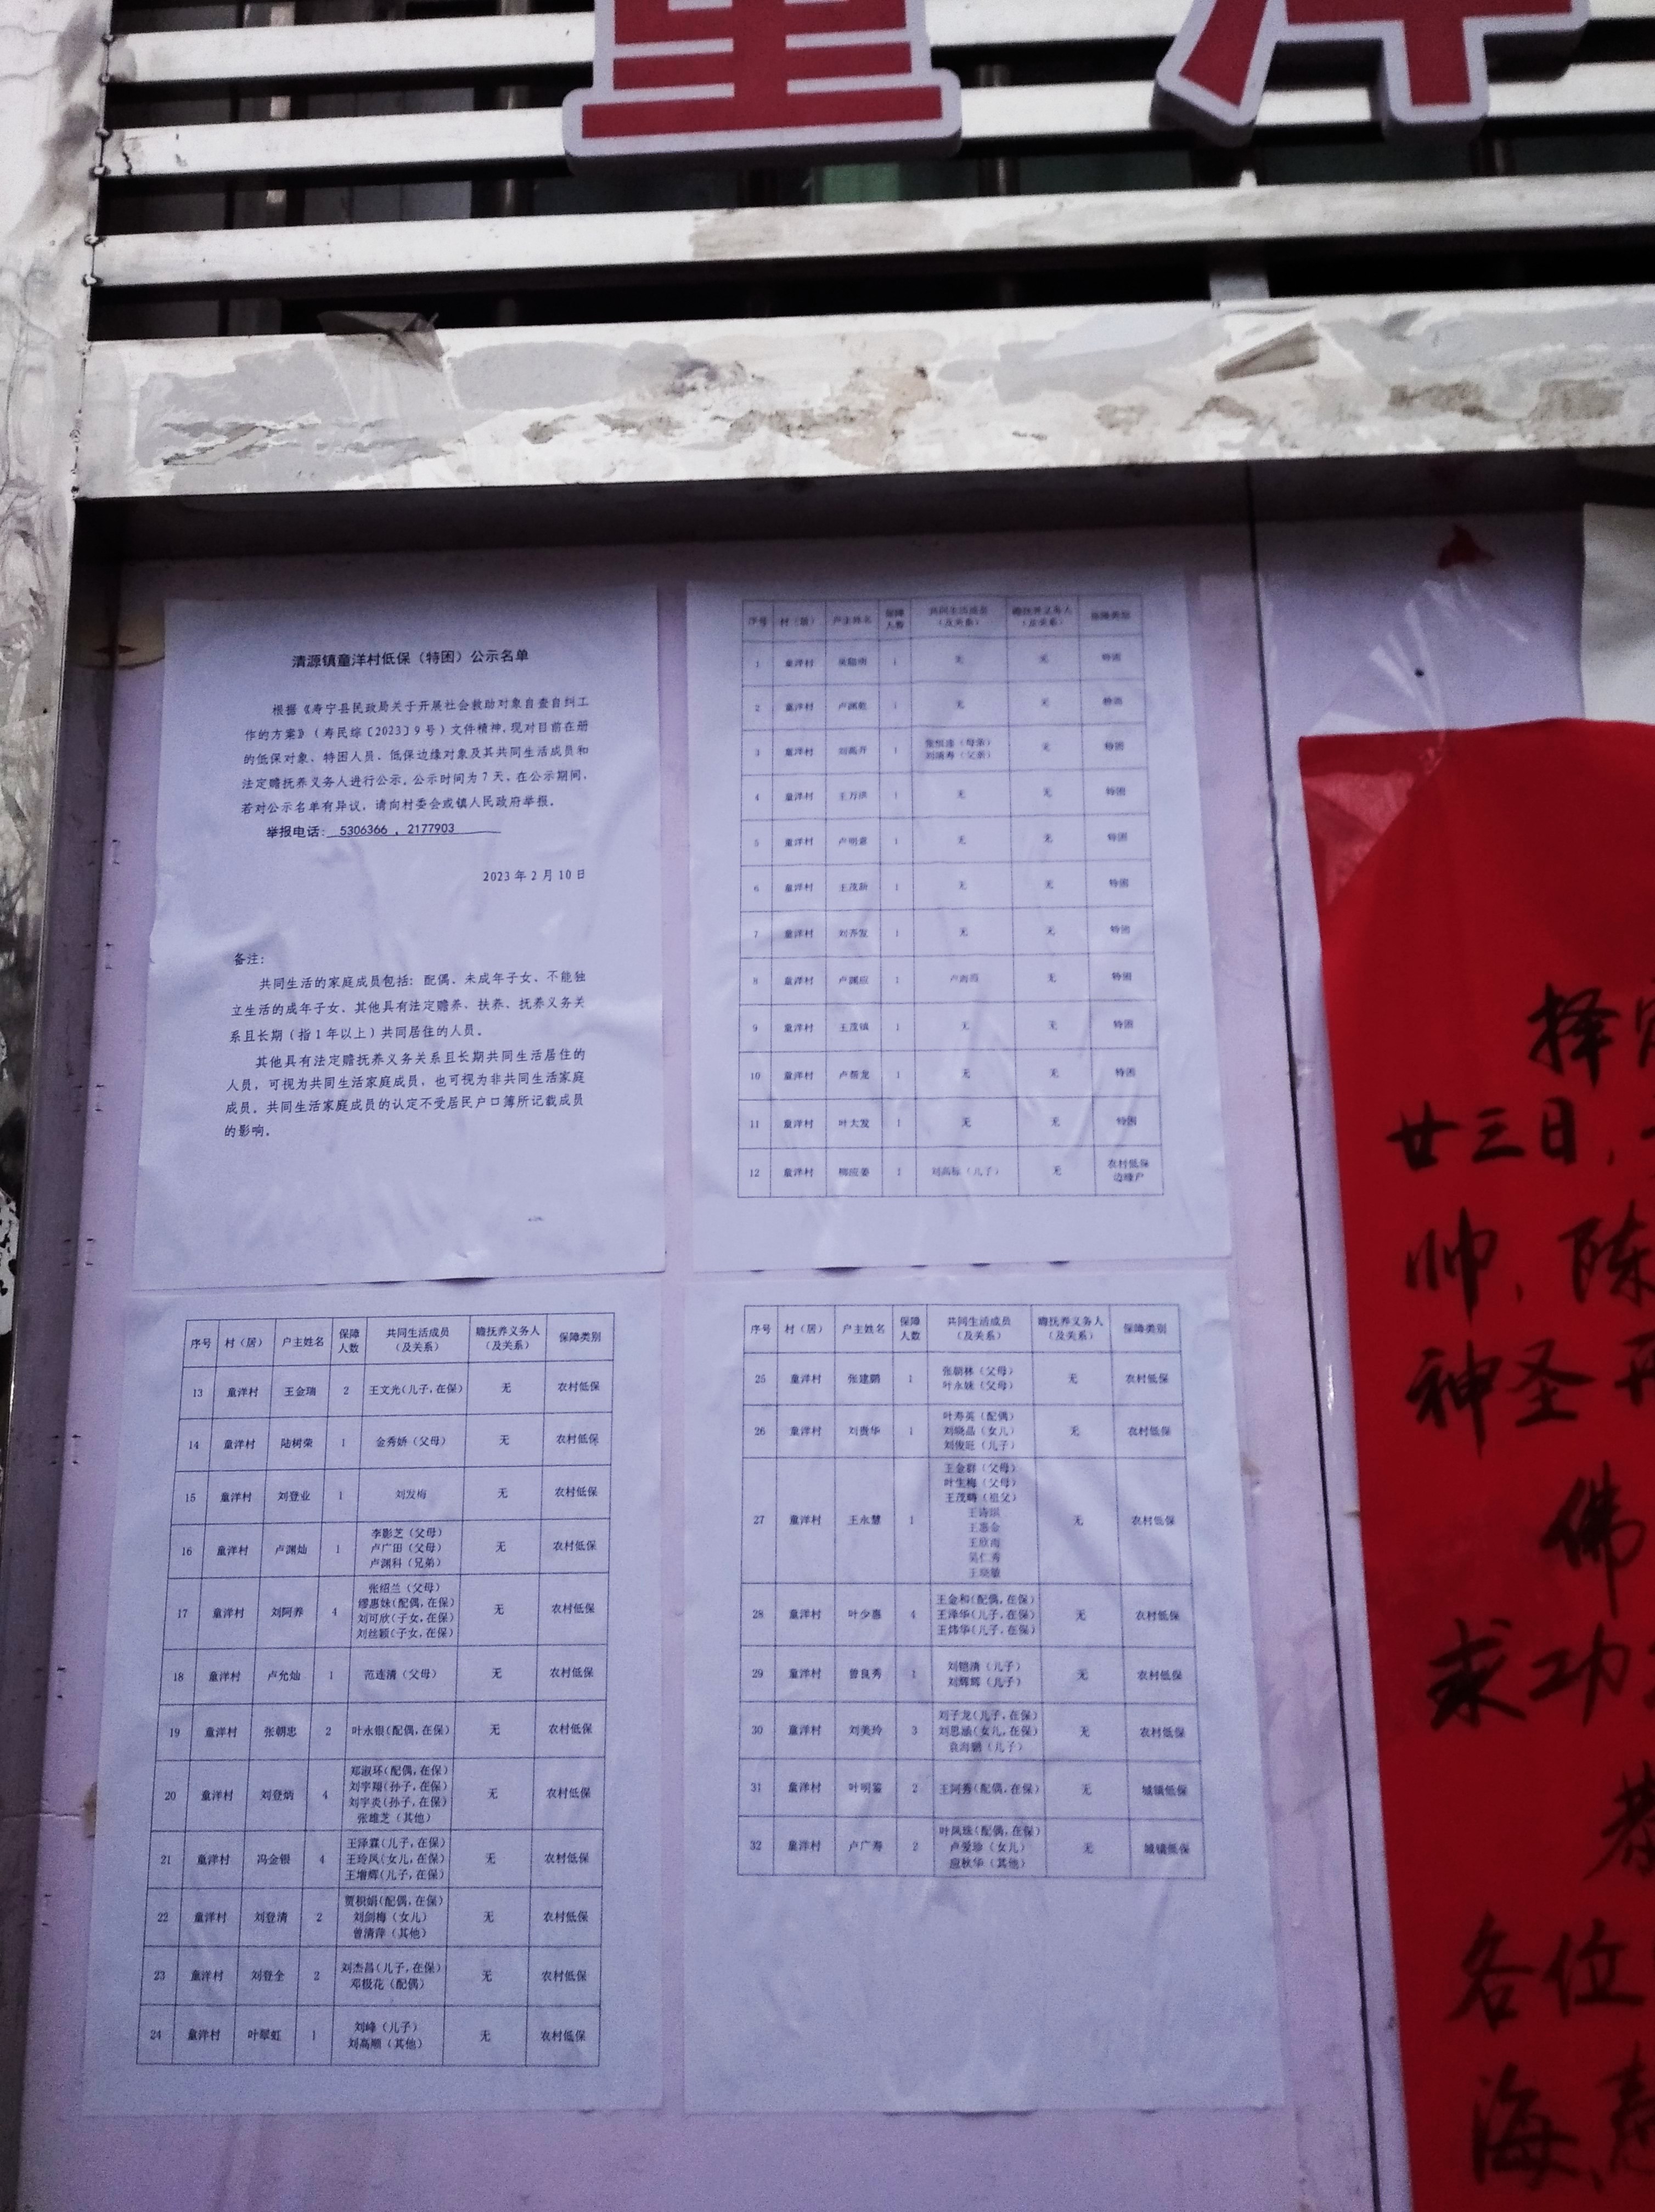 童洋
清源镇童洋村低保（特困）公示名单
根据《寿宁县民政局关于开展社会救助对象自查自纠工
作的方案》（寿民综〔2023〕9号）文件精神，现对目前在册
的低保对象、特困人员、低保边缘对象及其共同生活成员和
法定赡抚养义务人进行公示。公示时间为7天，在公示期间，
若对公示名单有异议，请向村委会或镇人民政府举报。
举报电话：5306366 ，2177903
2023年2月10日
备注：
共同生活的家庭成员包括：配偶、未成年子女、不能独
立生活的成年子女、其他具有法定赡养、扶养、抚养义务关
系且长期（指1年以上）共同居住的人员。
其他具有法定赡抚养义务关系且长期共同生活居住的
人员，可视为共同生活家庭成员，也可视为非共同生活家庭
成员。共同生活家庭成员的认定不受居民户口簿所记载成员
的影响。
序号 村（居） 户主姓名 保障人数 共同生活成员（及关系） 赡抚养义务人（及关系） 保障类别
1 童洋村 1 无 无 特困
2 童洋村 1 无 无 特困
3 童洋村 1 （母亲） （父亲） 无 特困
4 童洋村 王万洪 1 无 无 特困
5 童洋村 卢明 1 无 无 特困
6 童洋村 王茂新 1 无 无 特困
7 童洋村 刘齐发 1 无 无 特困
8 童洋村 卢渊应 1 无 特困
9 童洋村 王茂镇 1 无 无 特困
10 童洋村 卢帮龙 1 无 无 特困
11 童洋村 叶大发 1 无 无 特困
12 童洋村 柳应姜 1 刘高标（儿子） 无 农村低保边缘户
序号 村（居） 户主姓名 保障人数 共同生活成员（及关系） 赡抚养义务人（及关系） 保障类别
13 童洋村 王金瑞 2 王文光（儿子，在保） 无 农村低保
14 童洋村 陆树荣 1 金秀娇（父母） 无 农村低保
15 童洋村 刘登业 1 刘发梅 无 农村低保
16 童洋村 卢渊灿 1 李影芝（父母） 卢广田（父母） 卢渊科（兄弟） 无 农村低保
17 童洋村 刘阿养 4 张绍兰（父母） 缪惠妹（配偶，在保） 刘可欣（子女，在保） 刘丝颖（子女，在保） 无 农村低保
18 童洋村 卢允灿 1 范连清（父母） 无 农村低保
19 童洋村 张朝忠 2 叶永银（配偶，在保） 无 农村低保
20 童洋村 刘登炳 4 邓淑环（配偶，在保） 刘宇翔（孙子，在保） 刘宇炎（孙子，在保） 张雄芝（其他） 无 农村低保
21 童洋村 冯金银 4 王泽霖（儿子，在保） 王玲凤（女儿，在保） 王增辉（儿子，在保） 无 农村低保
22 童洋村 刘登清 2 贾枳娟（配偶，在保） 刘剑梅（女儿） 曾清萍（其他） 无 农村低保
23 童洋村 刘登全 2 刘杰昌（儿子，在保） 邓极花（配偶） 无 农村低保
24 童洋村 叶翠虹 1 刘峰（儿子） 刘高顺（其他） 无 农村低保
序号 村（居） 户主姓名 保障人数 共同生活成员（及关系） 赡抚养义务人（及关系） 保障类别
25 童洋村 张建鹏 1 张朝林（父母） 叶永妹（父母） 无 农村低保
26 童洋村 刘贵华 1 叶寿英（配偶） 刘晓晶（女儿） 刘俊旺（儿子） 无 农村低保
27 童洋村 王永慧 1 王金群（父母） 叶生梅（父母） 王茂畴（祖父） 王诗琪 王惠金 王欣雨 吴仁秀 王晓敏 无 农村低保
28 童洋村 叶少惠 4 王金和（配偶，在保） 王泽华（儿子，在保） 王炜华（儿子，在保） 无 农村低保
29 童洋村 曾良秀 1 刘锴清（儿子） 刘辉辉（儿子） 无 农村低保
30 童洋村 刘美玲 3 刘子龙（儿子，在保） 刘思涵（女儿，在保） 袁海鹏（儿子） 无 农村低保
31 童洋村 叶明鉴 2 王阿秀（配偶，在保） 无 城镇低保
32 童洋村 卢广寿 2 叶凤珠（配偶，在保） 卢爱珍（女儿） 应秋华（其他） 无 城镇低保
择
廿三日，
帅，陈
神圣
佛
求功
恭
各位
海，